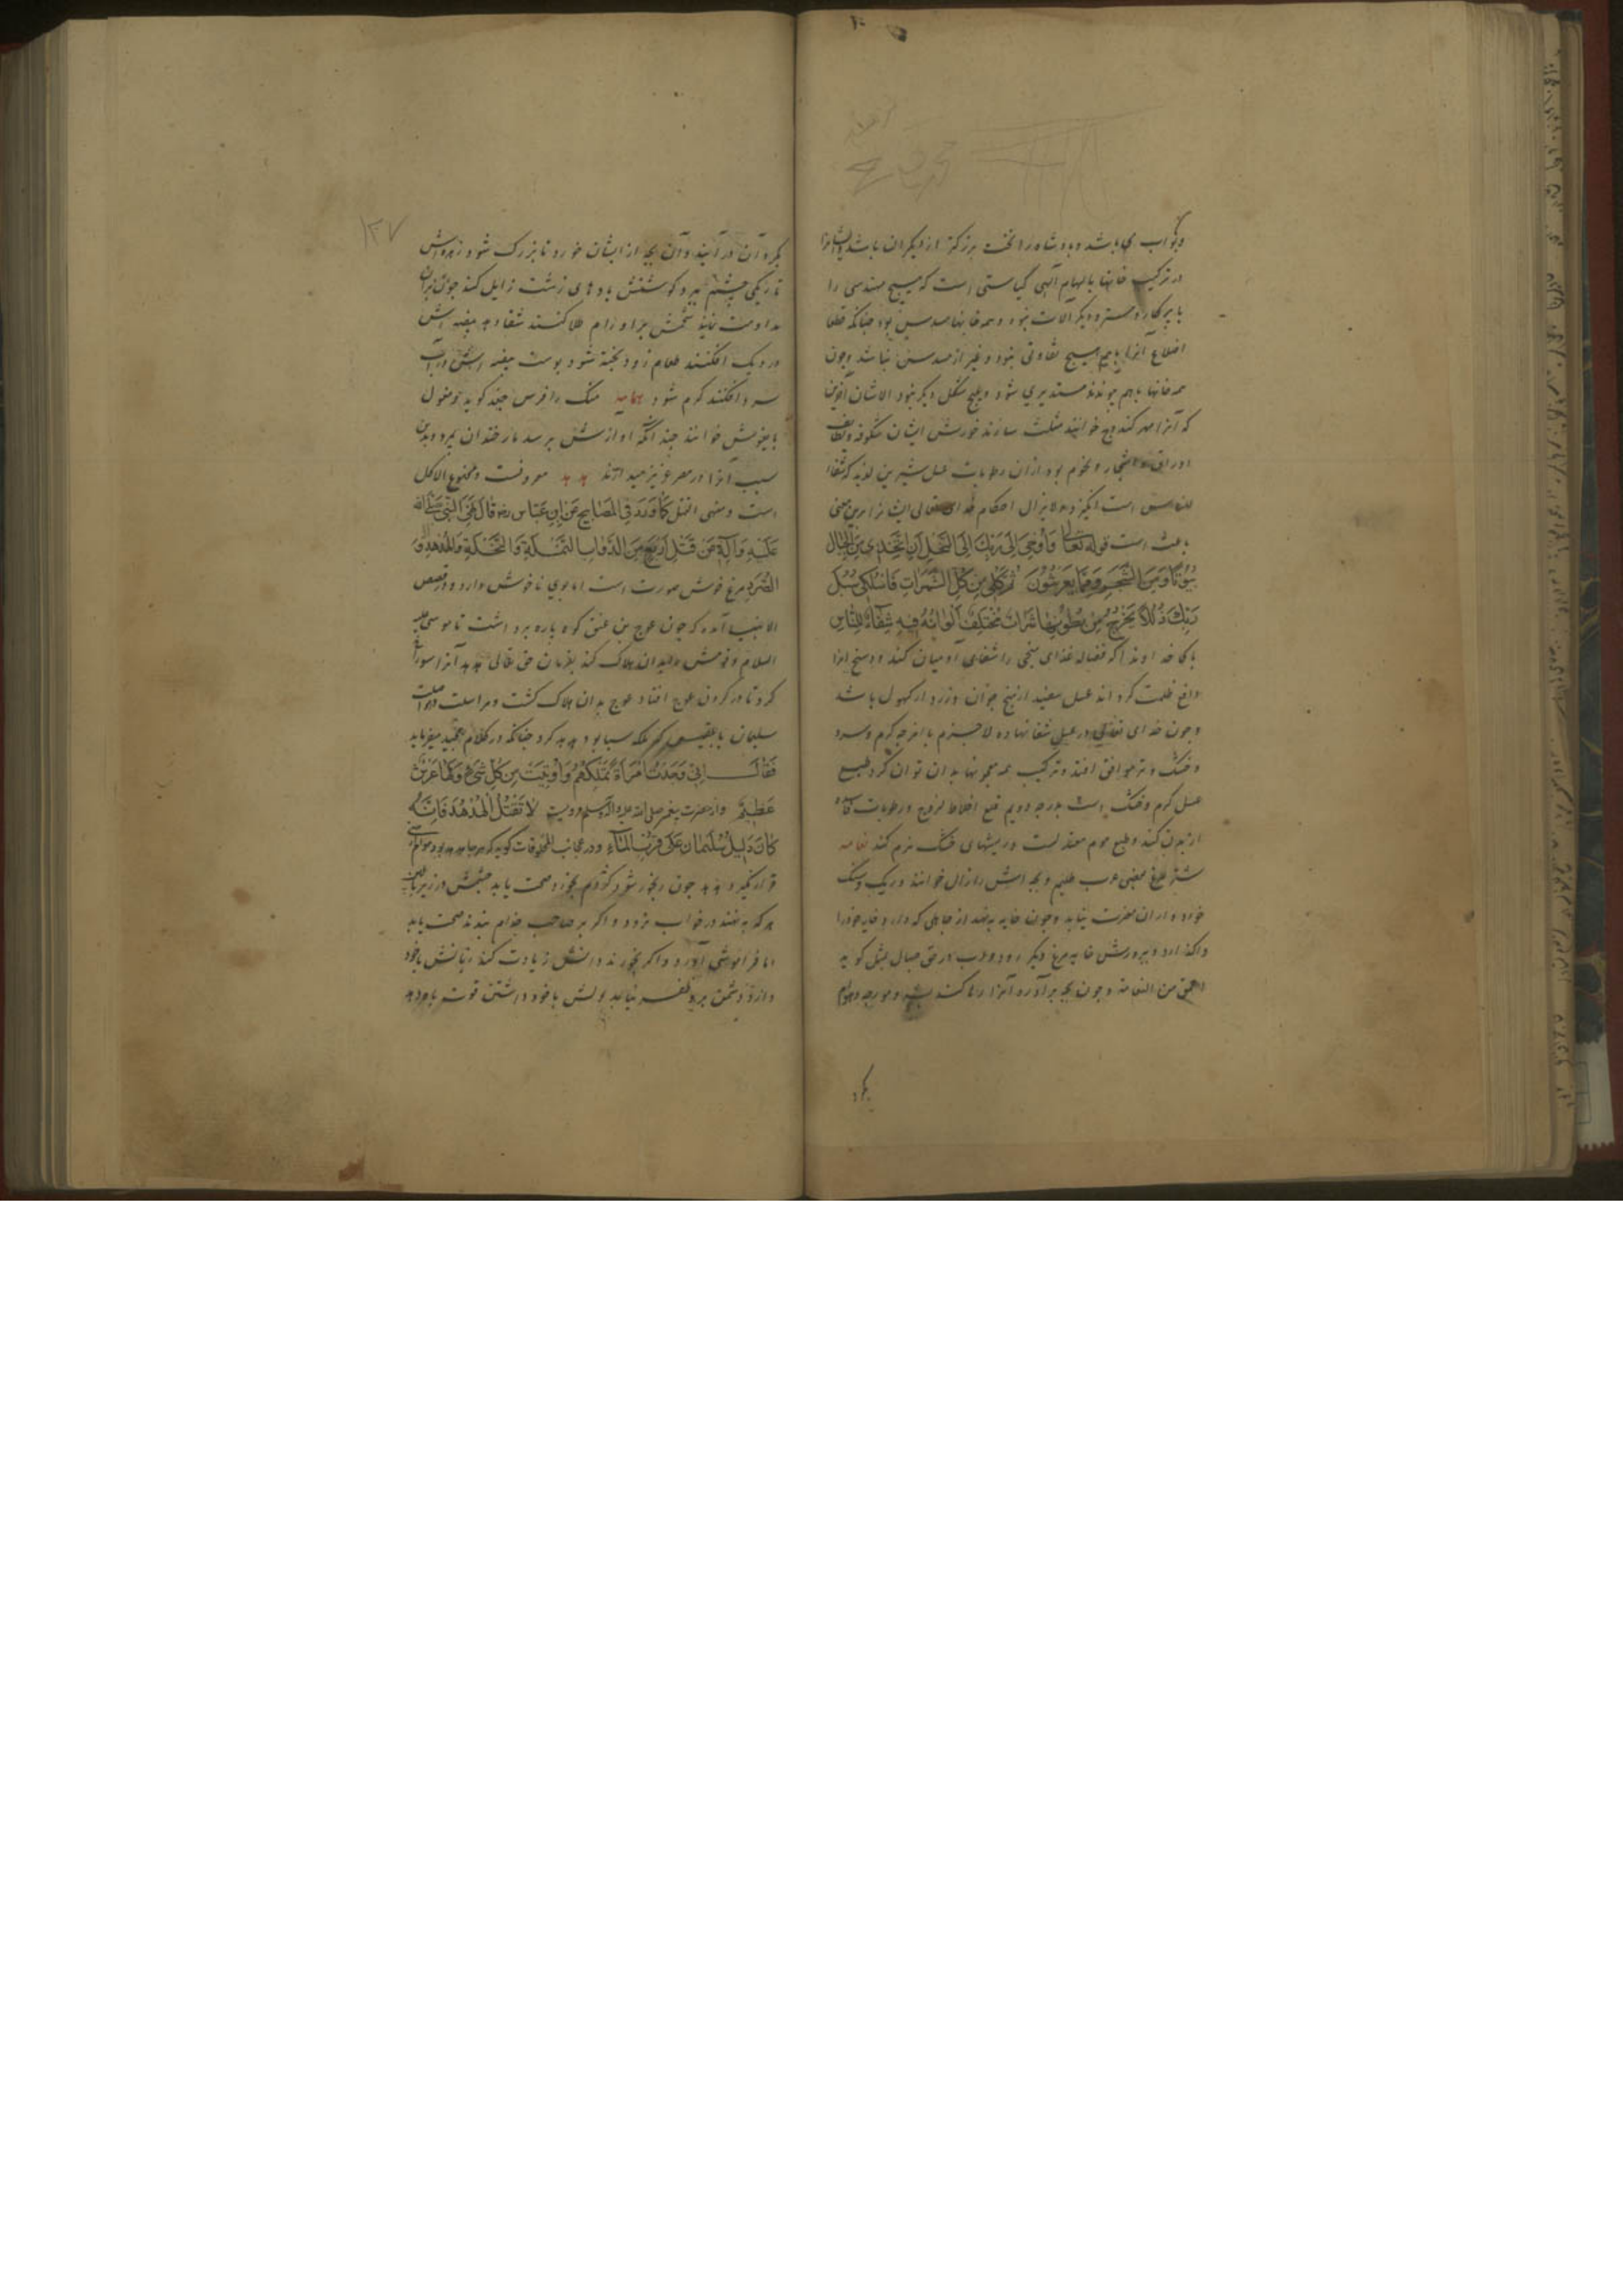 و نواب می باشد و پادشاه را تخت بزرکتر از دیکران باشد و ایشانرا
در ترکیب خانها بالهام الهی کیاستی است که هیچ مهندسی را
با پرکار و مسطره و دیکر آلات نبود و همه خانها مسدس بود چنانکه قطعا
اضلاع آنرا باهم هیچ تفاوتی نبود و غیر از مسدس نباشد و چون
همه خانها باهم پیوندند مستدیری شود و هیچ شکل دیکر نبود الا شان
که آنرا مهر کنند و خوانند مثلث سازند خورش ایشان شکوفه و لطایف
اوراق و اشجار و تخوم بود از آن رطوبات عسل شیرین لذیذ که شفاء
للناس است انکیزد و لایزال احکام خدای تعالی ایشانرا برین معنی
باعث است قوله تعالی وَأَوْحَىٰ رَبُّكَ إِلَى النَّحْلِ أَنِ اتَّخِذِي مِنَ الْجِبَالِ
بُيُوتًا وَمِنَ الشَّجَرِ وَمِمَّا يَعْرِشُونَ ثُمَّ كُلِي مِنْ كُلِّ الثَّمَرَاتِ فَاسْلُكِي سُبُلَ
رَبِّكِ ذُلُلًا يَخْرُجُ مِنْ بُطُونِهَا شَرَابٌ مُخْتَلِفٌ أَلْوَانُهُ فِيهِ شِفَاءٌ لِلنَّاسِ
پاکا خداوندا که فضاله غذای منجی را شفای آدمیان کند و وسخ آنرا
دافع ظلمت کرداند عسل سفید از منج جوان و زرد از کهول باشد
و چون خدای تعالی در عسل شفا نهاده لاجرم با امزجه کرم و سرد
و خشک و تر موافق افتد و ترکیب همه معجونها بدان توان کرد طبیع
عسل کرم و خشک است بدرجه دویم قطع اخلاط لزوج و رطوبات فاسده
از بدن کند و طبع موم معتدلست و ریشهای خشک نرم کند نعامه
شتر مرغ بعضی عرب ظلیم و بچه اش را زال خوانند و ریک و سنک
خورد و از آن مضرت نیابد و چون خایه بنهد از جاهلی که دارد خایه خود را
واکذارد و بپرورش خایه مرغ دیکر رود و عرب در حق جهال مثل کوید
احمق من النعامة و چون بچه برآورد آنرا رها کند پشه و مورچه و هوام
بکرد
۱۲۷
بکرد آن در آیند و آن بچه از ایشان خورد تا بزرک شود زهره اش
تاریکی چشم ببرد کوشتش بادهای زشت زایل کند چون بر آن
مداومت نمایند شحمش بر اورام طلا کنند شفا دهد بیضه اش
در دیک افکنند طعام زود پخته شود پوست بیضه اش در آب
سرد افکنند کرم شود همامه منک را فرس جغد کوید و مغول
یابغوش خوانند چندانکه آوازش برسد مار خندان بمیرد و بدین
سبب آنرا در مصر عزیز میدارند هدهد معروفست و ممنوع الاکل
است و منهی القتل كَمَا وَرَدَ فِي الْمَصَابِيحِ عَنِ ابْنِ عَبَّاسٍ رض قَالَ نَهَى النَّبِيُّ صَلَّى اللَّهُ
عَلَيْهِ وَآلِهِ عَنْ قَتْلِ أَرْبَعٍ مِنَ الدَّوَابِّ النَّمْلَةِ وَالنَّحْلَةِ وَالْهُدْهُدِ وَ
الصُّرَدِ مرغ خوش صورت است اما بوی ناخوش دارد و در قصص
الانبیا آمده که چون عوج بن عنق کوه پاره برداشت تا موسی علیه
السلام و قومش را بدان هلاک کند بفرمان حق تعالی هدهد آنرا سوراخ
کرد تا در کردن عوج افتاد عوج بدان هلاک کشت و مراسلت و مواصلت
سلیمان با بلقیس که ملکه سبا بود هدهد کرد چنانکه در کلام مجید میفرماید
فَقَالَ إِنِّي وَجَدْتُ امْرَأَةً تَمْلِكُهُمْ وَأُوتِيَتْ مِنْ كُلِّ شَيْءٍ وَلَهَا عَرْشٌ
عَظِيمٌ و از حضرت پیغمبر صلی الله علیه و آله و سلم مرویست لَا تَقْتُلُ الْهُدْهُدَ فَإِنَّهُ
كَانَ دَلِيلَ سُلَيْمَانَ عَلَى قُرْبِ الْمَاءِ و در عجایب المخلوقات کوید که هر جا هدهد بود هوام
قرار نکیرد و هدهد چون رنجور شود کژدم بخورد صحت یابد چشمش در زیر بالین
هر که بنهند در خواب نرود و اکر بر صاحب جذام بندند صحت یابد
اما فراموشی آورد و اکر بخورند دانش زیادت کند زبانش با خود
دارند دشمن برو ظفر نیابد پرش با خود داشتن قوت باه دهد